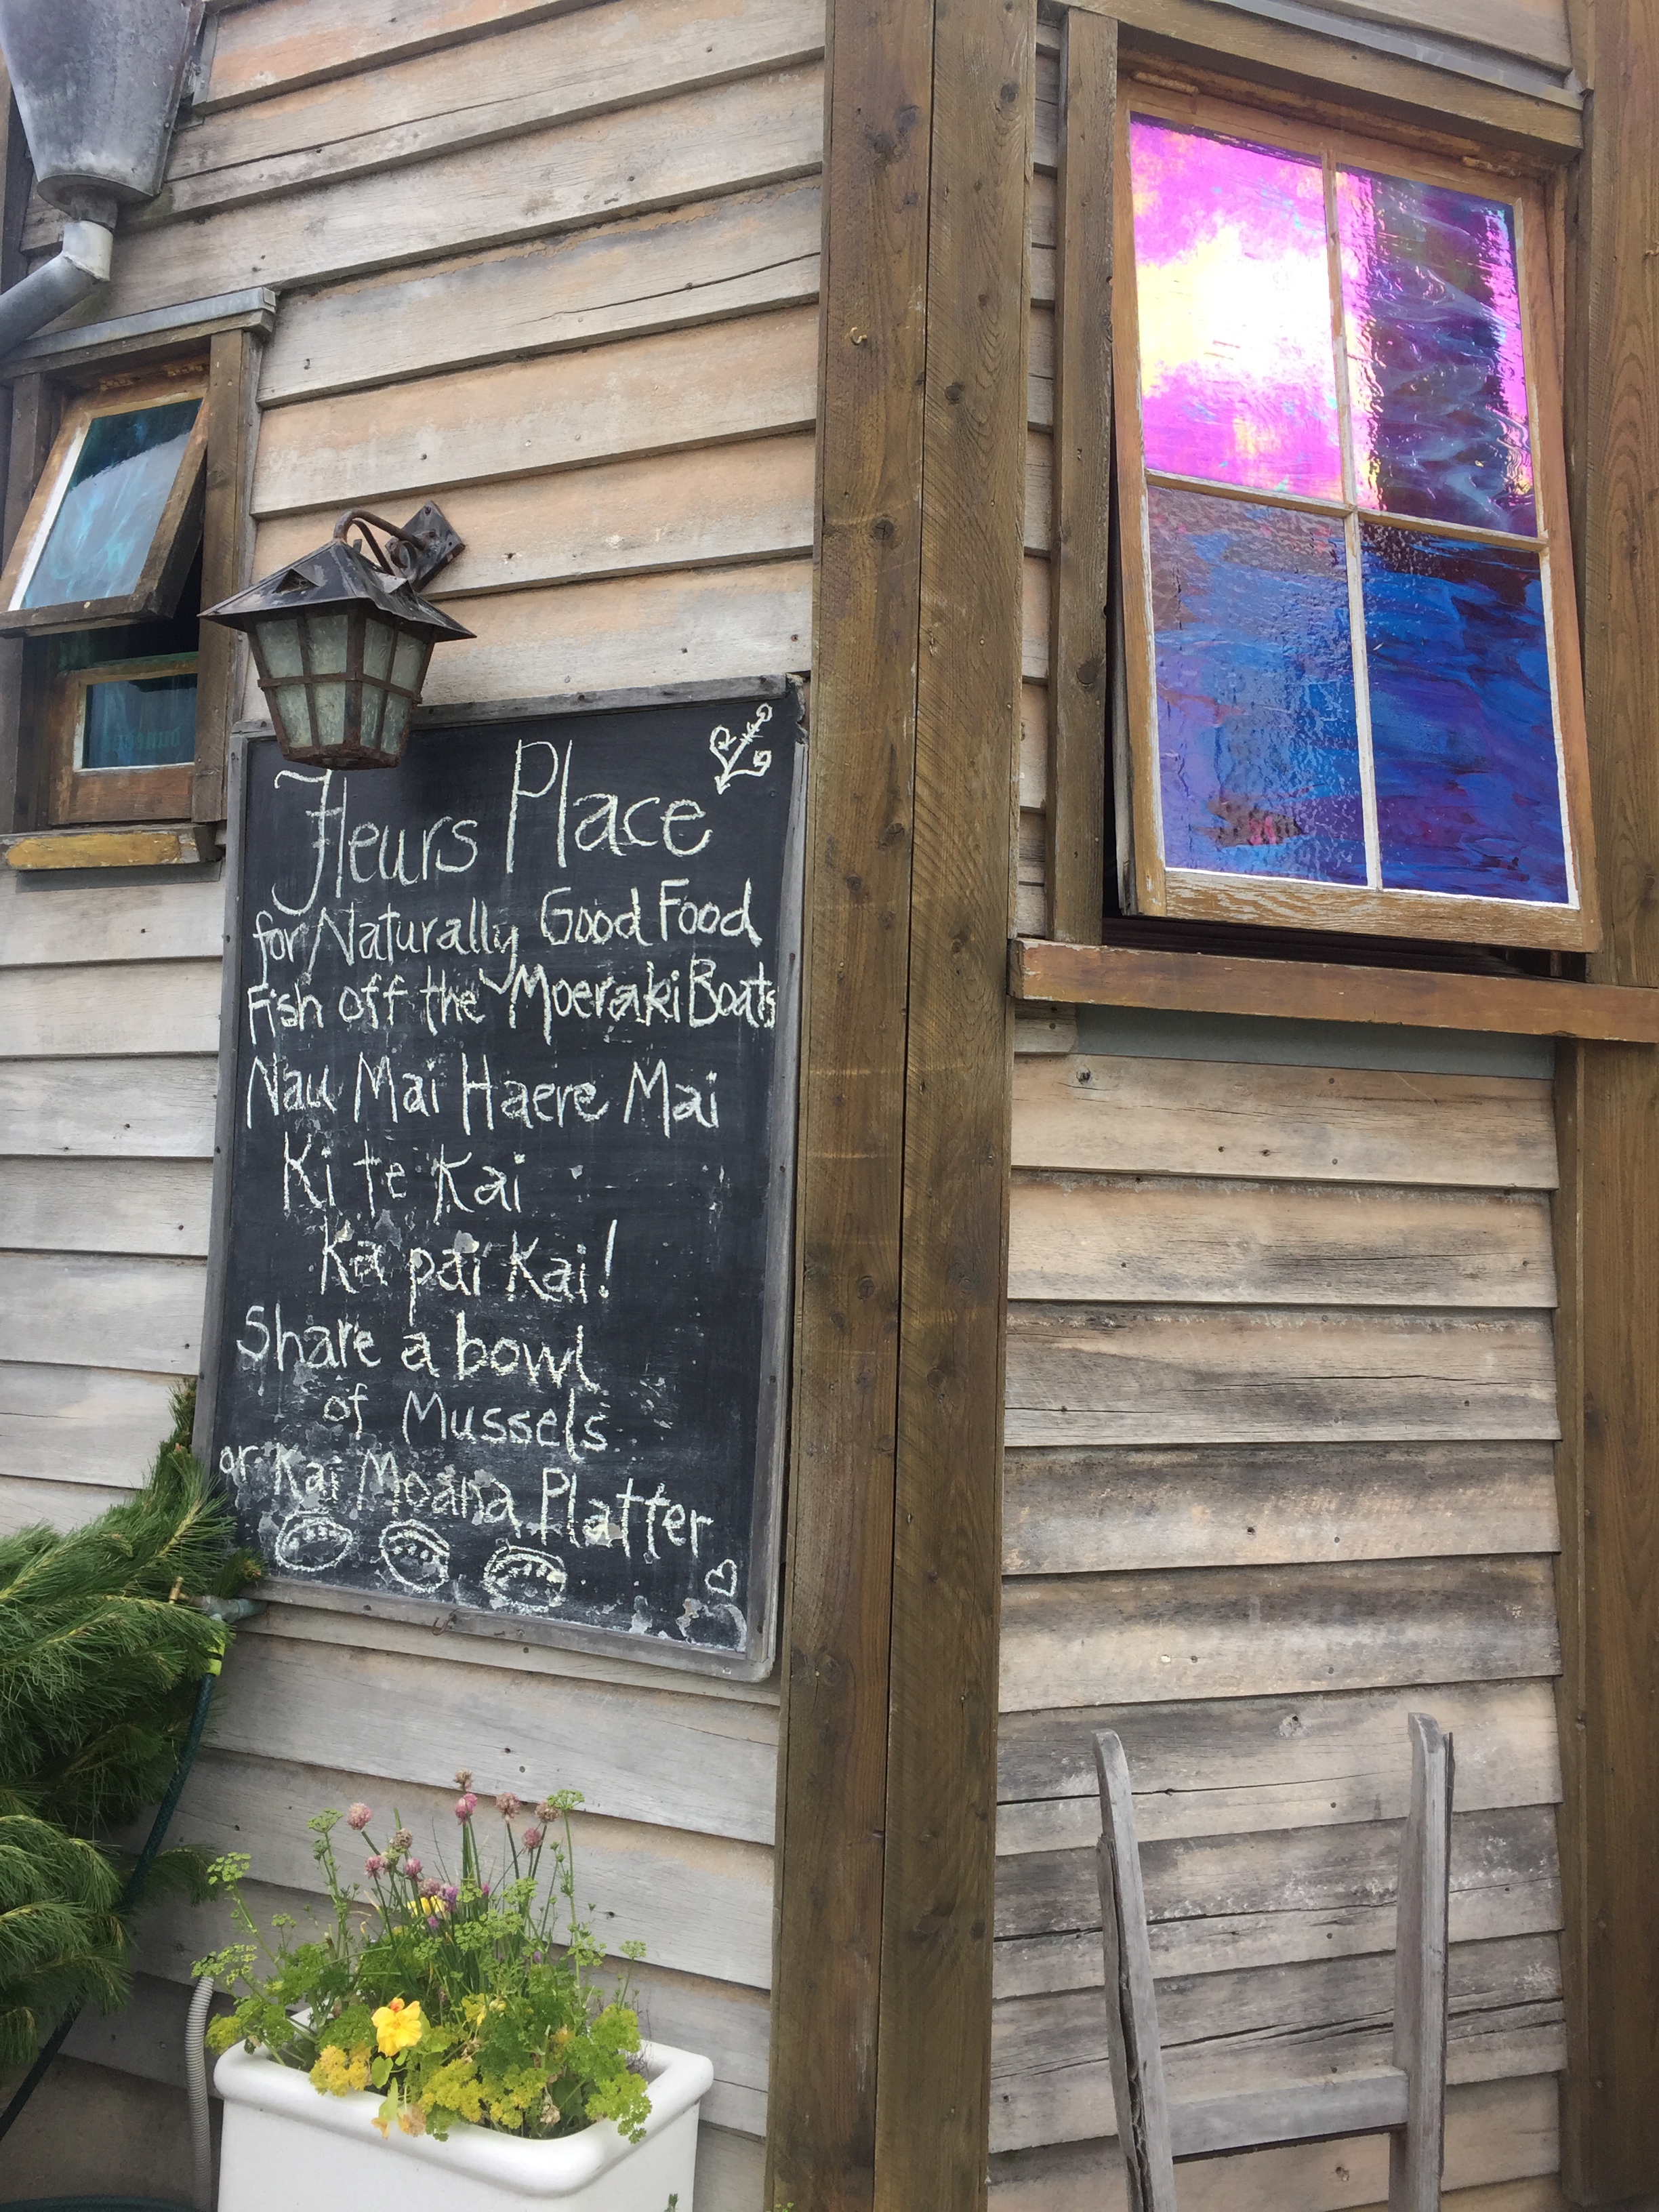 Fleurs Place
for Naturally Good Food
Fish off the Moeraki Boats
Nau Mai Haere Mai
Ki te Kai
Ka pai Kai!
Share a bowl
of Mussels
or Kai Moana Platter